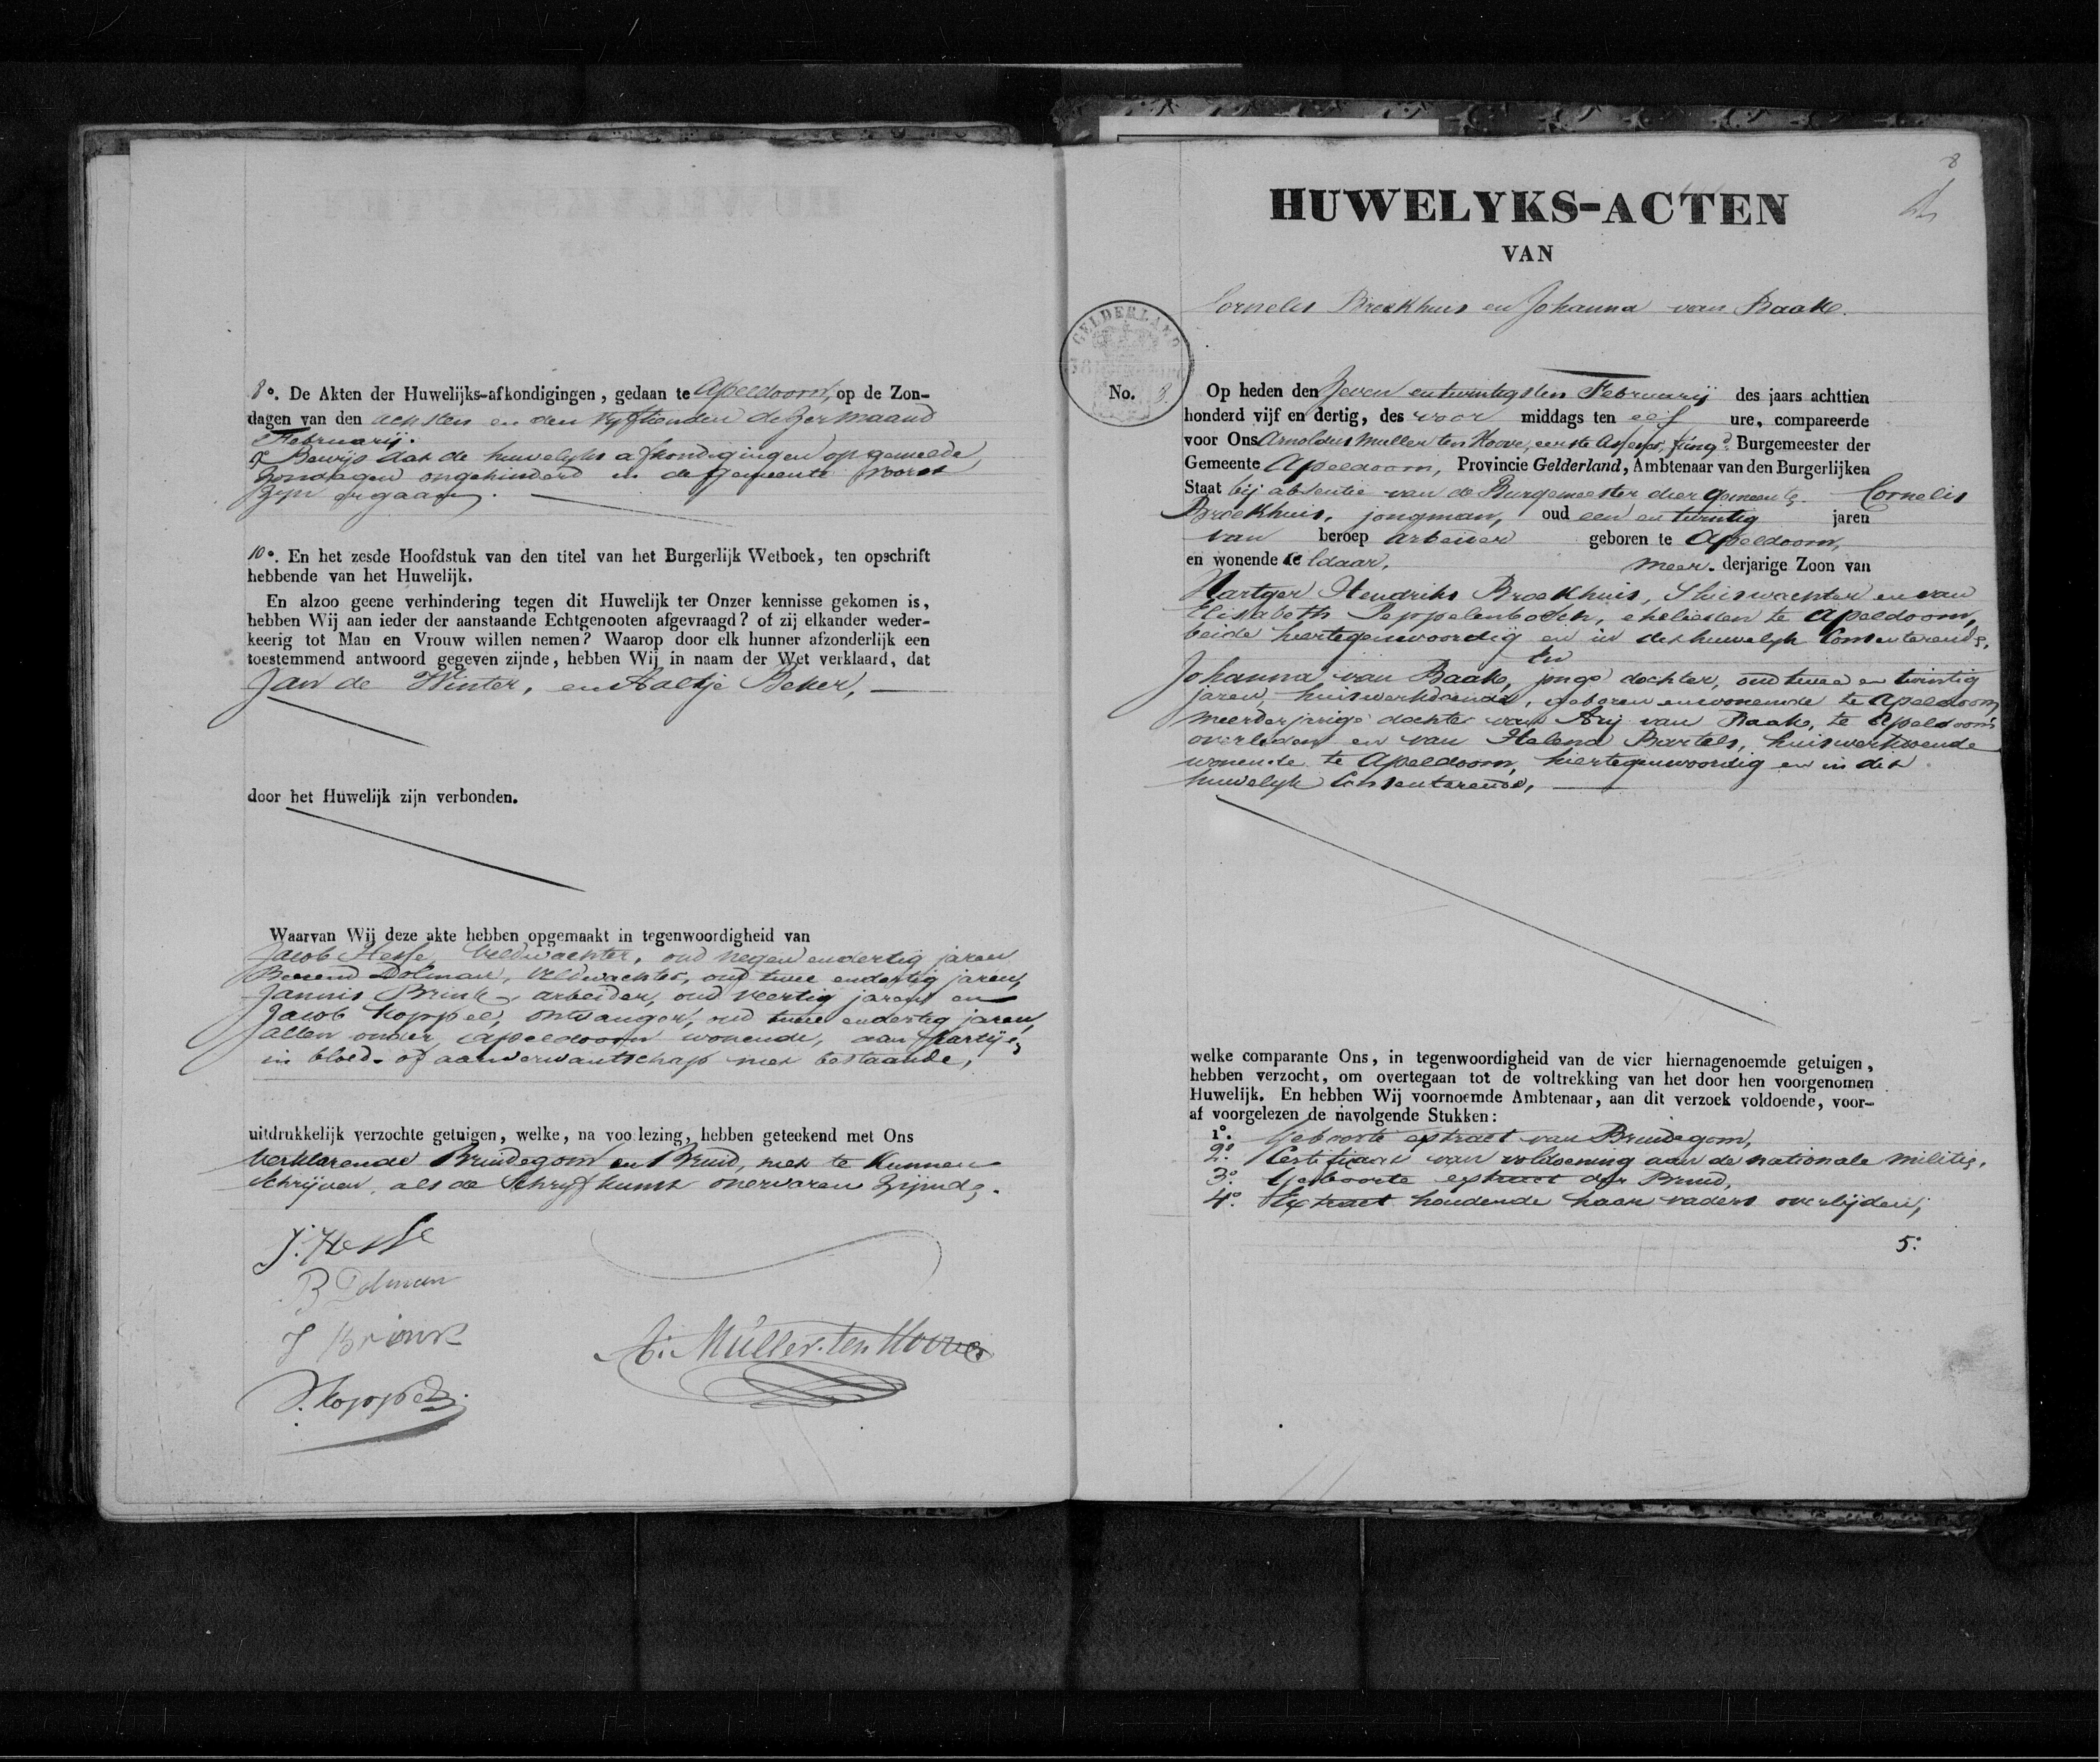 8o. De Akten der Huwelijks-afkondigingen, gedaan te Apeldoorn, op de Zon-
dagen van den achsten en den vyftienden dezer maand
Februarij.
9o Bewijs dat de huwelijks afkondigingen op gemelde,
Zondagen ongehinderd in de gemeente Voorst
zijn gegaan.
10o. En het zesde Hoofdstuk van den titel van het Burgerlijk Wetboek, ten opschrift
hebbende van het Huwelijk.
En alzoo geene verhindering tegen dit Huwelijk ter Onzer kennisse gekomen is,
hebben Wij aan ieder der aanstaande Echtgenooten afgevraagd? of zij elkander weder-
keerig tot Man en Vrouw willen nemen? Waarop door elk hunner afzonderlijk een
toestemmend antwoord gegeven zijnde, hebben Wij in naam der Wet verklaard, dat
Jan de Winter, en Aaltje Beker,
door het Huwelijk zijn verbonden.
Waarvan Wij deze akte hebben opgemaakt in tegenwoordigheid van
Jacob Hesse, Veldwachter, oud negen endertig jaren
Berend Dolman, Veldwachter, oud twee endertig jaren,
Jannis Brink, arbeider, oud veertig jaren en
Jacob Koppel, ontvanger, oud twee endertig jaren,
allen onder Apeldoorn wonende, aan Partije,
in bloed- of aanverwantschap niet bestaande,
uitdrukkelijk verzochte getuigen, welke, na voorlezing, hebben geteekend met Ons
verklarende Bruidegom en Bruid, niet te kunnen
schrijven, als de Schryfkunst onervaren zijnde.
J. Hesse
B Dolman
J Brink
J. Koppel
A: Müller ten Hoove
8
HUWELYKS-ACTEN
VAN
Cornelis Broekhuis en Johanna van Baak.
GELDERLAND
No. 8.
Op heden den Zeven en twintigsten Februarij des jaars achttien
honderd vijf en dertig, des voor middags ten elf ure, compareerde
voor Ons Arnoldus Muller ten Hoove, eerste Assessor, fungd. Burgemeester der
Gemeente Apeldoorn, Provincie Gelderland, Ambtenaar van den Burgerlijken
Staat bij absentie van de Burgemeester dier gemeente. Cornelis
Broekhuis, jongman, oud een en twintig jaren
van beroep arbeider geboren te Apeldoorn,
en wonende aldaar, meer-derjarige Zoon van
Hartger Hendriks Broekhuis, Sluiswachter en van
Elisabeth Peppelenbosch, ehelieden te Apeldoorn,
beide hiertegenwoordig en in dit huwelyk Consenterende,
En
Johanna van Baak, jonge dochter, oud twee en twintig
jaren, huiswerkdoende, geboren en wonende te Apeldoorn,
meerderjarige dochter van Arij van Baak, te Apeldoorn
overleden en van Helena Bartels, huiswerkdoende
wonende te Apeldoorn, hiertegenwoordig en in dit
huwelyk Consenterende,
welke comparante Ons, in tegenwoordigheid van de vier hiernagenoemde getuigen,
hebben verzocht, om overtegaan tot de voltrekking van het door hen voorgenomen
Huwelijk. En hebben Wij voornoemde Ambtenaar, aan dit verzoek voldoende, voor-
af voorgelezen de navolgende Stukken:
1o. Geboorte extract van Bruidegom,
2o. Certificaat van voldoening aan de nationale militie,
3o. Geboorte extract der Bruid,
4o. Extract houdende haar vaders overlijden,
5o.